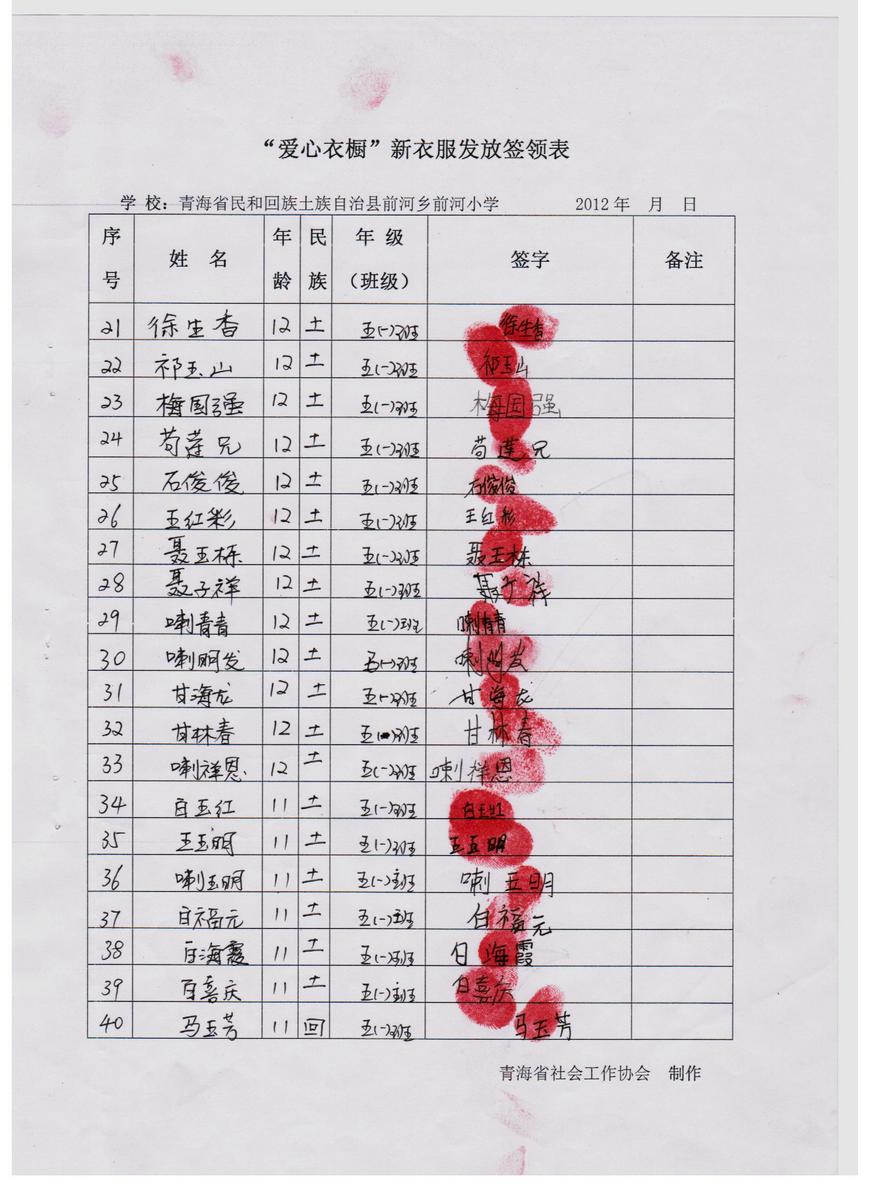 “爱心衣橱”新衣服发放签领表
学 校：青海省民和回族土族自治县前河乡前河小学 2012年 月 日
序号 姓 名 年龄 民族 年 级（班级） 签字 备注
21 徐生香 12 土 五(一)班 徐生香
22 祁玉山 12 土 五(一)班 祁玉山
23 梅国强 12 土 五(一)班 梅国强
24 苟莲兄 12 土 五(一)班 苟莲兄
25 石俊俊 12 土 五(一)班 石俊俊
26 王红彩 12 土 五(一)班 王红彩
27 聂玉栋 12 土 五(一)班 聂玉栋
28 聂子祥 12 土 五(一)班 聂子祥
29 喇青青 12 土 五(一)班 喇青青
30 喇明发 12 土 五(一)班 喇明发
31 甘海龙 12 土 五(一)班 甘海龙
32 甘林春 12 土 五(一)班 甘林春
33 喇祥恩 12 土 五(一)班 喇祥恩
34 白玉红 11 土 五(一)班 白玉红
35 王玉明 11 土 五(一)班 王玉明
36 喇玉明 11 土 五(一)班 喇玉明
37 白福元 11 土 五(一)班 白福元
38 白海霞 11 土 五(一)班 白海霞
39 白喜庆 11 土 五(一)班 白喜庆
40 马玉芳 11 回 五(一)班 马玉芳
青海省社会工作协会 制作